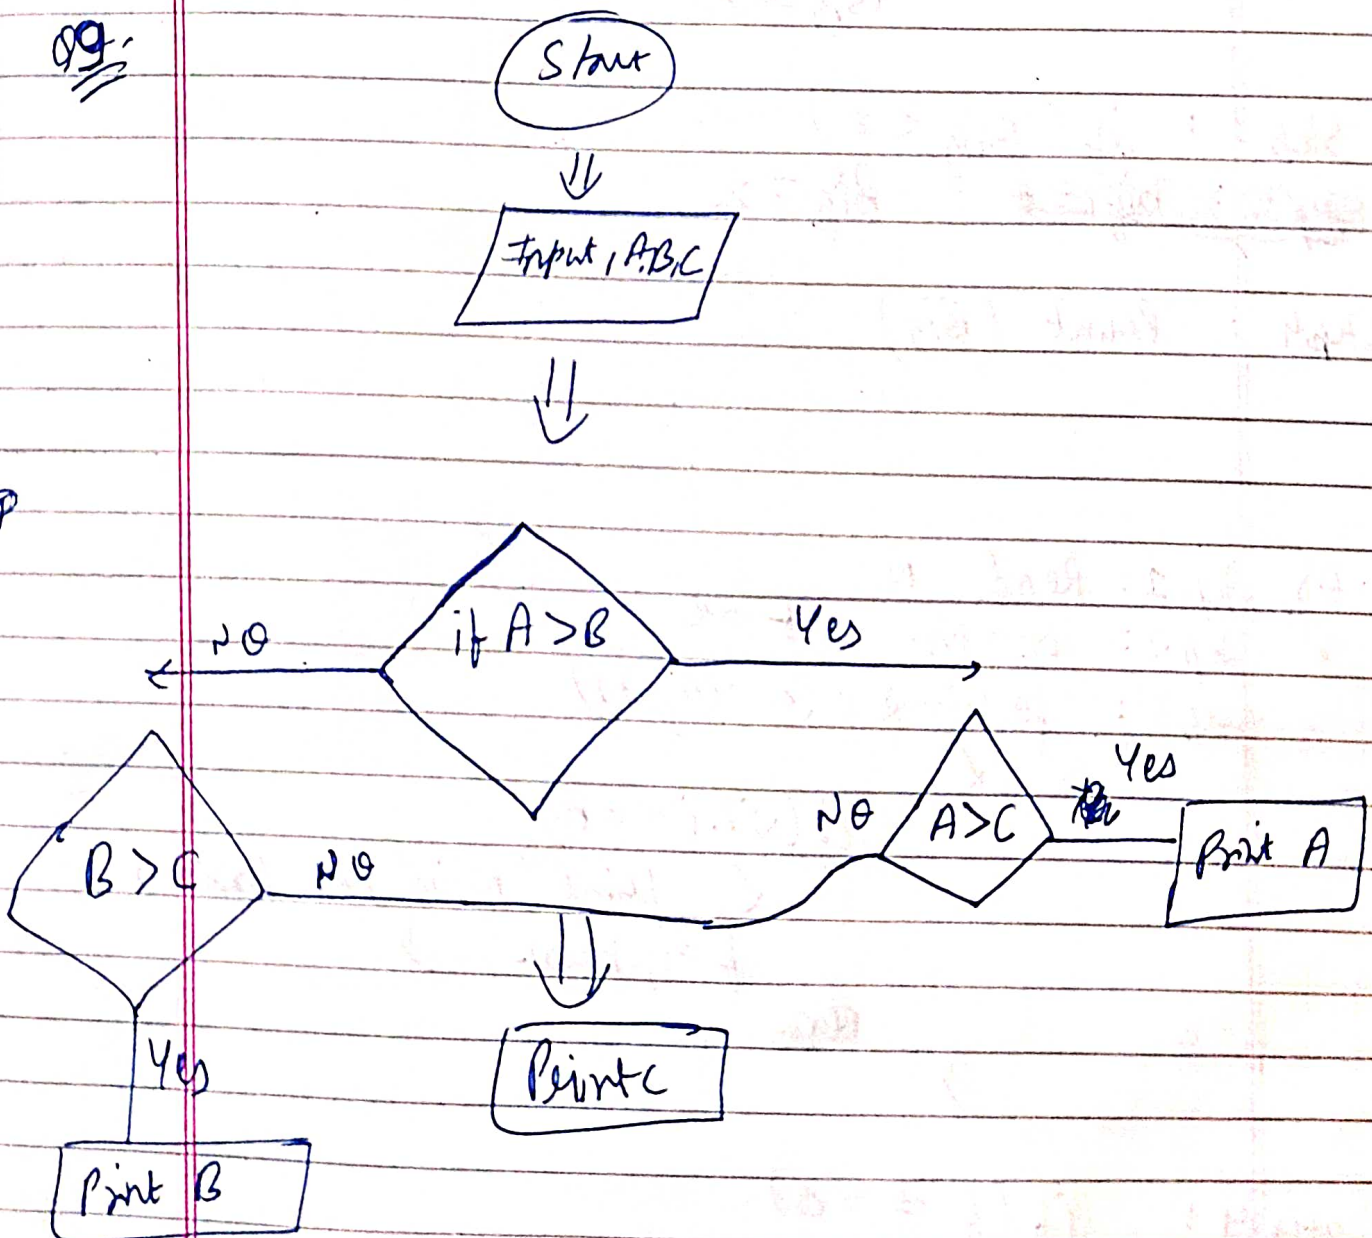 Q9.
Start
Input, A,B,C
if A>B
NO
Yes
Yes
NO
A>C
Print A
B>C
NO
Yes
Print C
Print B